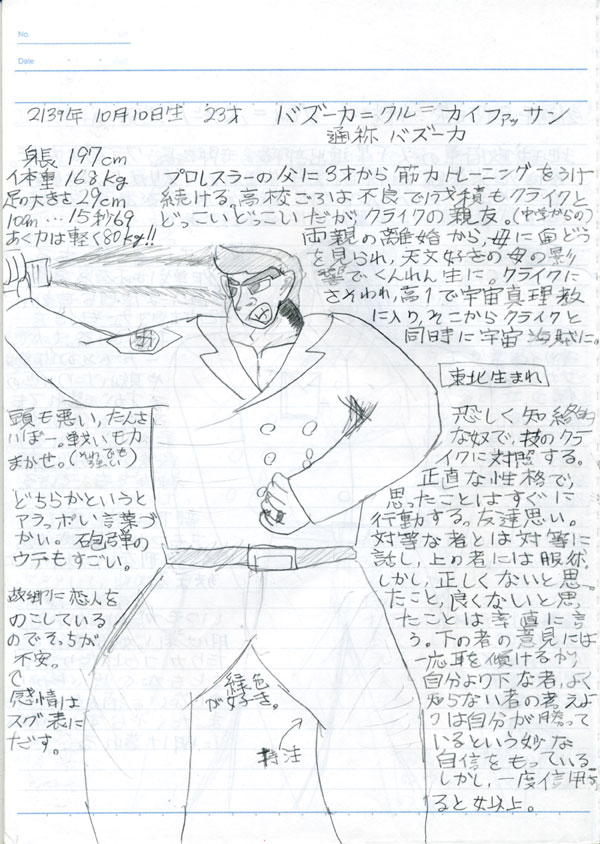 No.
Date
2139年 10月10日生 23才 バズーカ=クル=カイファッサン
通称 バズーカ
身長 197cm
体重 168kg
足の大きさ 29cm
100m…15秒69
あく力は軽く80kg!!
プロレスラーの父に3才から筋力トレーニングをうけ
続ける。高校ごろは不良で成積もクライクと
どっこいどっこいだがクライクの親友。(中学からの)
両親の離婚から、母に面どう
を見られ、天文好きの母の影
響でくんれん生に。クライクに
さそわれ、高1で宇宙真理教
に入り、そこからクライクと
同時に宇宙海賊に。
東北生まれ
頭も悪い、たんさ
いぼー。戦いも力
まかせ。(それでも強い)
どちらかというと
アラッポい言葉づ
かい。砲弾の
ウデもすごい。
故郷に恋人を
のこしている
のでそっちが
不安。
で
感情は
スグ表に
だす。
恐しく知終的
な奴で、技のクラ
イクに対照する。
正直な性格で、
思ったことはすぐに
行動する。友達思い。
対等な者とは対等に
話し、上の者には服従。
しかし、正しくないと思っ
たこと、良くないと思っ
たことは率直に言
う。下の者の意見には
一応耳を傾けるが
自分より下な者、よく
知らない者の考えよ
りは自分が勝って
いるという妙な
自信をもっている。
しかし、一度信用す
ると以上。
緑色
が好き。
特注